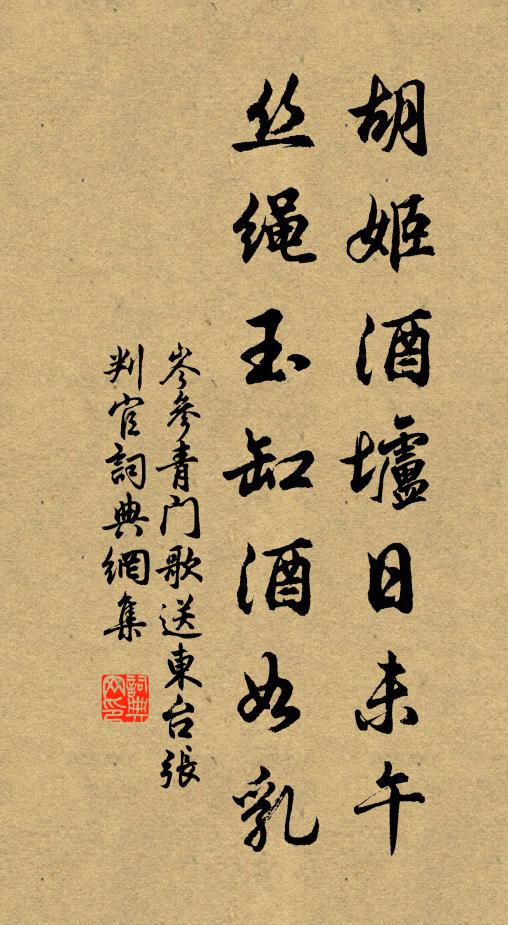 胡姬酒壚日未午
丝绳玉缸酒如乳
岑參青门歌送東台張
判官詞典網集
詞典网印